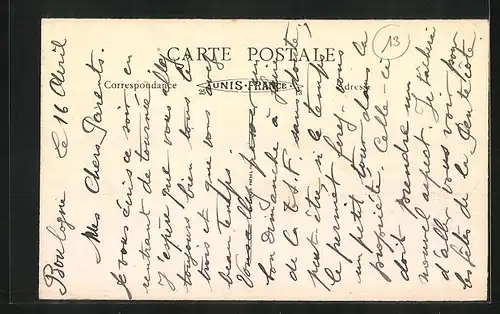 13
CARTE POSTALE
Correspondance
UNIS-FRANCE
Adresse
Boulogne le 16 Avril
Mes Chers Parents.
Je vous écris ce soir en
rentrant de tournée.
J'espère que vous allez
toujours bien tous les
trois et que vous avez
beau temps.
Vous allez passer un
bon dimanche à
de la T.S.F. sans doute,
peut être si le temps
le permet ferez-vous
un petit tour dans la
propriété. Celle-ci
doit prendre un
nouvel aspect. Je tâcherai
d'aller vous voir pour
les fêtes de la Pentecôte